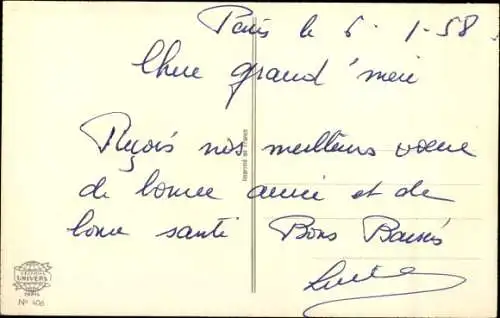 Paris le 6-1-58
Chere grand'mère
Reçois nos meilleurs voeux
de bonne année et de
bonne santé Bons Baisers
Imprimé en France
UNIVERS
PARIS
Nº 406